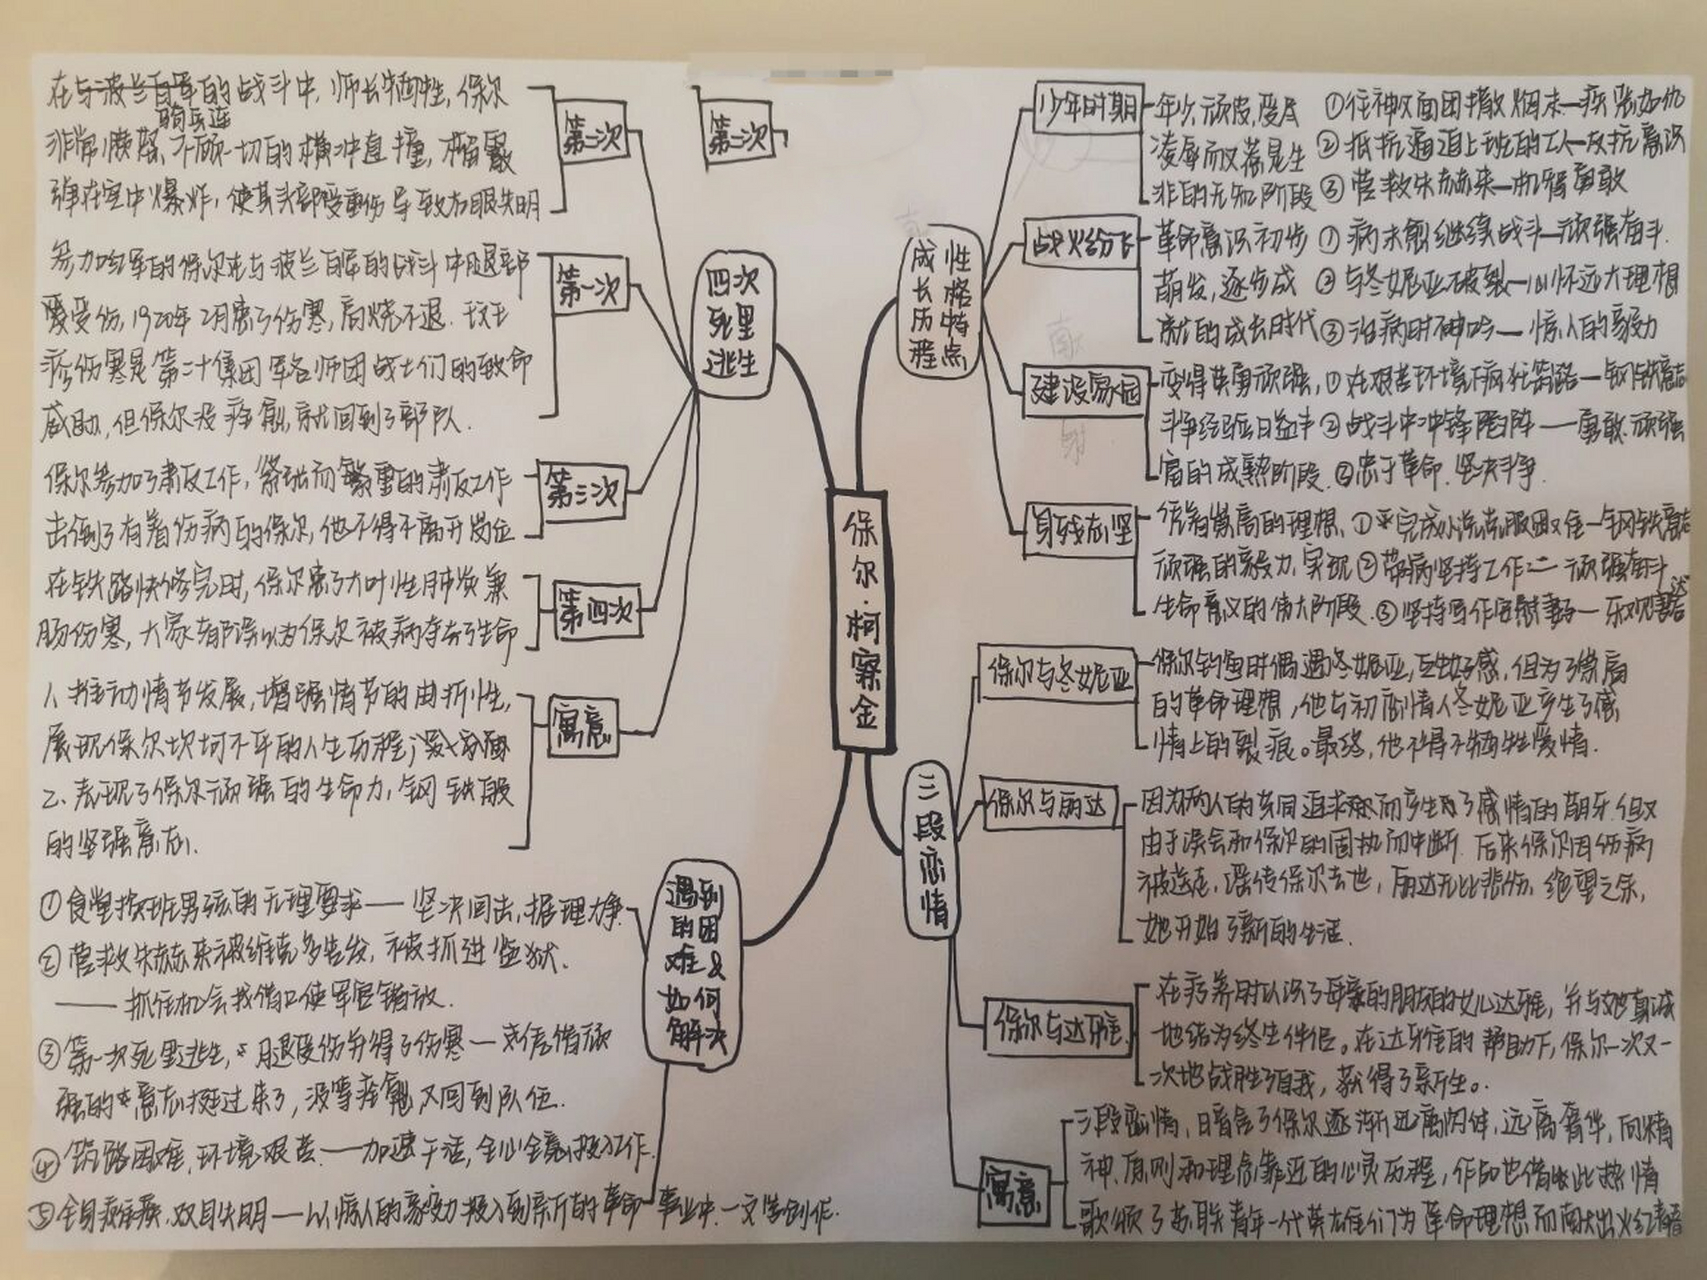 保尔·柯察金
四次死里逃生
第二次
第二次
在与波兰白军的战斗中,师长牺牲,保尔
骑兵连
非常愤怒,不顾一切的横冲直撞,榴霰
弹在空中爆炸,使其头部受重伤导致右眼失明
第一次
参加红军的保尔在与波兰白军的战斗中腿部
受伤,1920年2月患了伤寒,高烧不退.
伤寒是第二十集团军各师团战士们的致命
威胁,但保尔没痊愈,就回到了部队.
第三次
保尔参加了肃反工作,紧张而繁重的肃反工作
击倒了有着伤病的保尔,他不得不离开岗位
第四次
在铁路快修完时,保尔患了大叶性肺炎兼
肠伤寒,大家都误以为保尔被病夺去了生命
寓意
1、推动情节发展,增强情节的曲折性,
展现保尔坎坷不平的人生历程;
2、表现了保尔顽强的生命力,钢铁般
的坚强意志.
遇到的困难&如何解决
①食堂按班男孩的无理要求——坚决回击,据理力争
②营救朱赫来被维克多告发,被抓进监狱.
——抓住机会找借口使军官错放.
③第一次死里逃生,腿受伤并得了伤寒—凭借顽
强的意志挺过来了,没等痊愈又回到队伍.
④筑路困难,环境艰苦.——加速干活,全心全意投入工作.
⑤全身瘫痪.双目失明——以惊人的毅力投入到新的革命事业中.—文学创作.
成长历程 性格特点
少年时期
年少顽皮,受尽 ①往神父面团撒烟末—疾恶如仇
凌辱而又荒是生 ②抵抗逼迫上班的工人—反抗意识
非的无知阶段 ③营救朱赫来—机智勇敢
战火纷飞
革命意识初步 ①病未愈继续战斗—顽强奋斗.
萌发,逐步成 ②与冬妮亚破裂—心怀远大理想
熟的成长时代 ③治病时不呻吟—惊人的毅力
建设家园
变得英勇顽强, ①在艰苦环境下疯狂筑路—钢铁意志
斗争经验日益丰 ②战斗中冲锋陷阵——勇敢.顽强
富的成熟阶段. ②忠于革命.坚决斗争.
身残志坚
凭着崇高的理想、 ①完成小说克服困难—钢铁意志
顽强的毅力,实现 ②带病坚持工作——顽强奋斗
生命意义的伟大阶段. ③坚持写作安慰妻子—乐观豁达
三段恋情
保尔与冬妮亚
保尔钓鱼时偶遇冬妮亚,互生好感,但为了崇高
的革命理想,他与初恋情人冬妮亚产生了感
情上的裂痕。最终,他不得不牺牲爱情.
保尔与丽达
因为两人的共同追求而产生了感情的萌芽.但又
由于误会和保尔的固执而中断.后来保尔因伤病
被送走,误传保尔去世,丽达无比悲伤,绝望之余,
她开始了新的生活.
保尔与达雅
在疗养时认识了母亲的朋友的女儿达雅,并与她真诚
地结为终生伴侣。在达雅的帮助下,保尔一次又一
次地战胜了自我,获得了新生。
寓意
三段恋情,暗含了保尔逐渐远离肉体,远离奢华,向精
神、原则和理念靠近的心灵历程,作品也借此热情
歌颂了苏联青年一代英雄们为革命理想而闯出火红青春